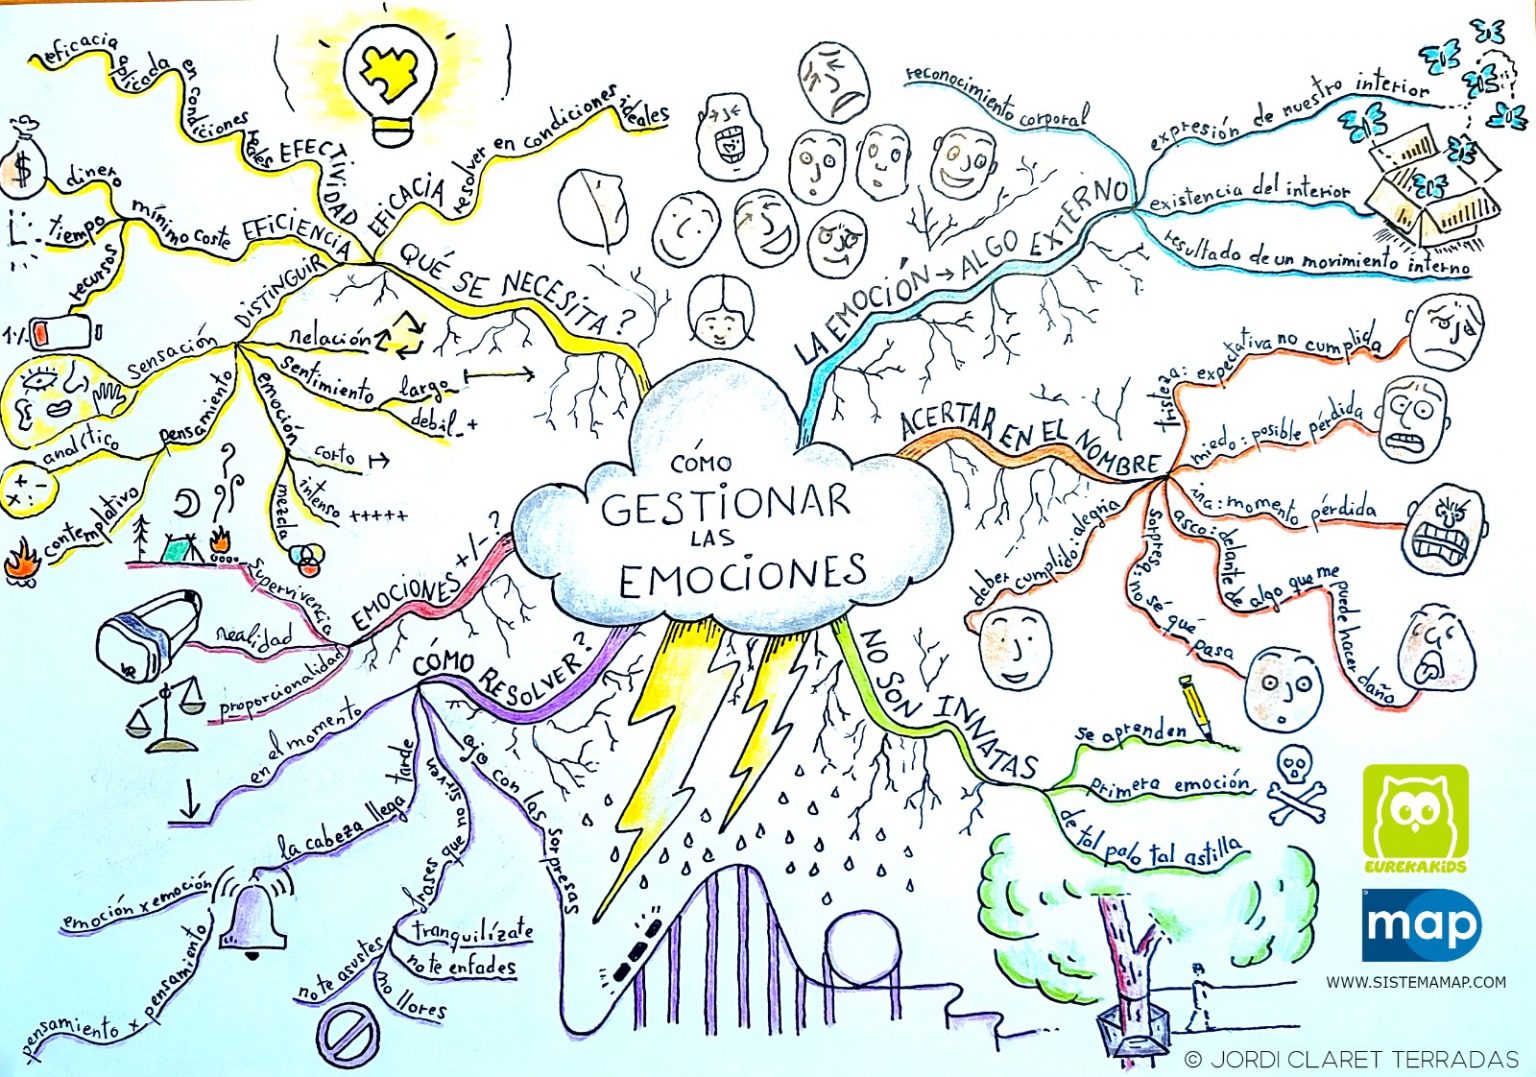 CÓMO
GESTIONAR
LAS
EMOCIONES
LA EMOCIÓN → ALGO EXTERNO
reconocimiento corporal
expresión de nuestro interior
existencia del interior
resultado de un movimiento interno
ACERTAR EN EL NOMBRE
tristeza: expectativa no cumplida
miedo: posible pérdida
ira: momento pérdida
asco: delante de algo que me puede hacer daño
Sorpresa: no sé qué pasa
deber cumplido: alegria
NO SON INNATAS
se aprenden
primera emoción
de tal palo tal astilla
CÓMO RESOLVER?
ojo con las sorpresas
frases que no sirven
tranquilízate
no te enfades
no llores
no te asustes
la cabeza llega tarde
emoción x emoción
pensamiento x pensamiento
en el momento
EMOCIONES +/- ?
supervivencia
realidad
proporcionalidad
VR
QUÉ SE NECESITA?
EFICACIA
resolver en condiciones ideales
EFECTIVIDAD
eficacia aplicada en condiciones reales
EFICIENCIA
mínimo coste
dinero
$
tiempo
recursos
1%
DISTINGUIR
relación
sentimiento
largo
debil - +
emoción
corto
intenso +++++
mezcla
pensamiento
analítico
+ -
x :
contemplativo
sensación
EUREKAKIDS
map
WWW.SISTEMAMAP.COM
© JORDI CLARET TERRADAS